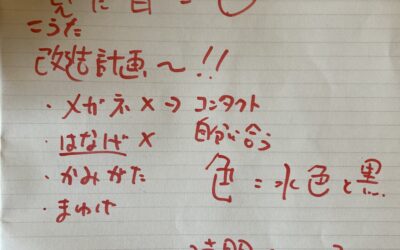 見た目 =
こうた
改造計画〜!!
・メガネ × → コンタクト
・はなげ × 自分に合う
・かみがた 色 = 水色と黒
・まゆげ